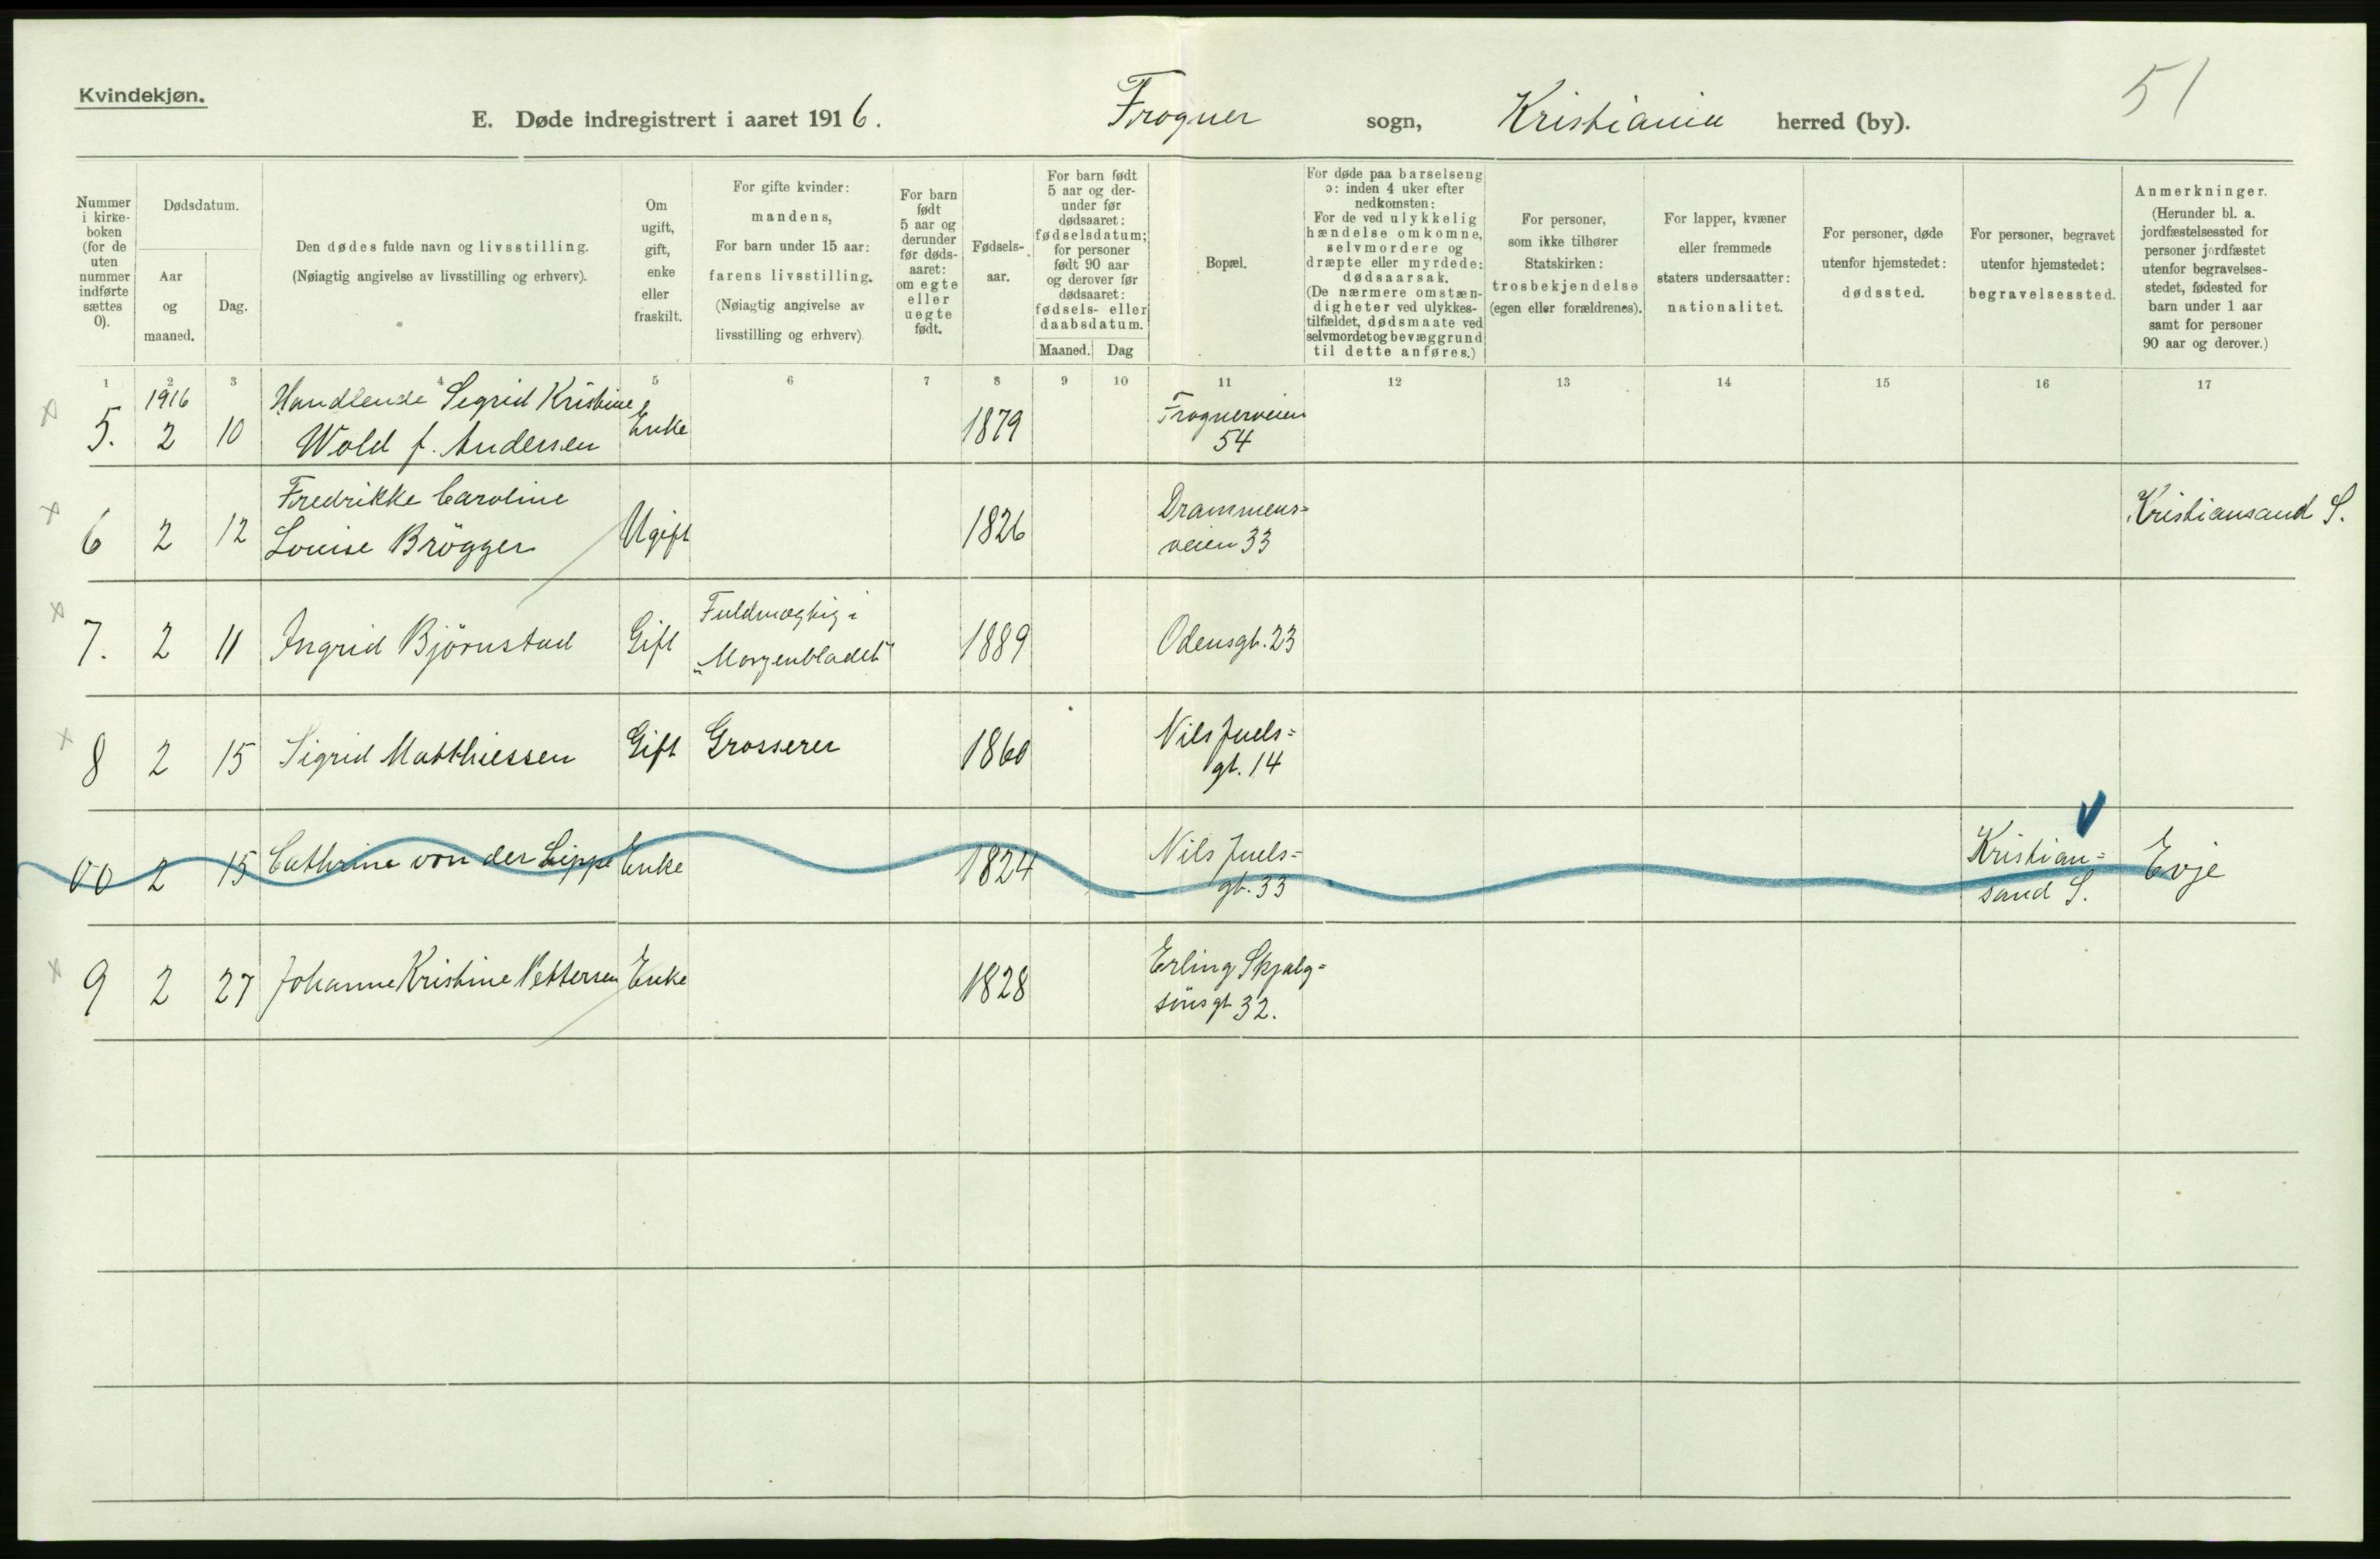 Kvindekjøn.
51
E. Døde indregistrert i aaret 1916. Frogner sogn, Kristiania herred (by).
Nummer
i kirke-
boken
(for de
uten
nummer
indførte
sættes
0).
Dødsdatum.
Aar
og
maaned.
Dag.
Den dødes fulde navn og livsstilling.
(Nøiagtig angivelse av livsstilling og erhverv).
Om
ugift,
gift,
enke
eller
fraskilt.
For gifte kvinder:
mandens,
For barn under 15 aar:
farens livsstilling.
(Nøiagtig angivelse av
livsstilling og erhverv)
For barn
født
5 aar og
derunder
før døds-
aaret:
om egte
eller
uegte
født.
Fødsels-
aar.
For barn født
5 aar og der-
under før
dødsaaret:
fødselsdatum;
for personer
født 90 aar
og derover før
dødsaaret:
fødsels- eller
daabsdatum.
Maaned. Dag
Bopæl.
For døde paa barselseng
ɔ: inden 4 uker efter
nedkomsten:
For de ved ulykkelig
hændelse omkomne,
selvmordere og
dræpte eller myrdede:
dødsaarsak.
(De nærmere omstæn-
digheter ved ulykkes-
tilfældet, dødsmaate ved
selvmordet og bevæggrund
til dette anføres.)
For personer,
som ikke tilhører
Statskirken:
trosbekjendelse
(egen eller forældrenes).
For lapper, kvæner
eller fremmede
staters undersaatter:
nationalitet.
For personer, døde
utenfor hjemstedet:
dødssted.
For personer, begravet
utenfor hjemstedet:
begravelsessted.
Anmerkninger.
(Herunder bl. a.
jordfæstelsessted for
personer jordfæstet
utenfor begravelses-
stedet, fødested for
barn under 1 aar
samt for personer
90 aar og derover.)
1 2 3 4 5 6 7 8 9 10 11 12 13 14 15 16 17
1916 Handlende Sigrid Kristine Frognerveien
× 5. 2 10 Wold f. Andersen Enke 1879 54
Fredrikke Caroline Drammens= Kristiansand S.
× 6 2 12 Louise Brögger Ugift 1826 veien 33
Fuldmægtig i
× 7. 2 11 Ingrid Björnstad Gift "Morgenbladet" 1889 Odensgt. 23
Nils Juels=
× 8 2 15 Sigrid Matthiessen Gift Grosserer 1860 gt. 14
Nils Juels= Kristian=
00 2 15 Cathrine von der Lippe Enke 1824 gt. 33 sand S. Evje
Erling Skjalg=
× 9 2 27 Johanne Kristine Pettersen Enke 1828 sönsgt 32.